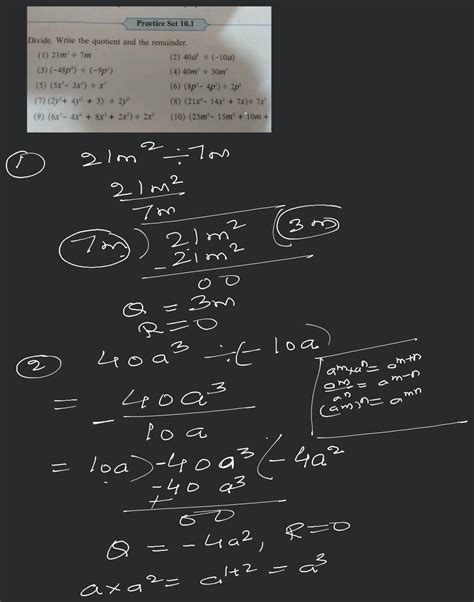 Practice Set 10.1
Divide. Write the quotient and the remainder.
(1) 21m² ÷ 7m (2) 40a³ ÷ (-10a)
(3) (-48p⁴) ÷ (-9p²) (4) 40m⁵ ÷ 30m³
(5) (5x³ - 3x²) ÷ x² (6) (8p³ - 4p²) ÷ 2p²
(7) (2y³ + 4y² + 3) ÷ 2y² (8) (21x⁴ - 14x² + 7x) ÷ 7x³
(9) (6x⁵ - 4x⁴ + 8x³ + 2x²) ÷ 2x² (10) (25m⁴ - 15m³ + 10m +
① 21m² ÷ 7m
21m²
7m
7m ) 21m² ( 3m
- 21m²
00
Q = 3m
R = 0
② 40a³ ÷ (- 10a)
= - 40a³
10a
= 10a ) -40a³ ( - 4a²
-40 a³
+
00
Q = -4a², R = 0
a x a² = a¹⁺² = a³
aᵐxaⁿ = aᵐ⁺ⁿ
aᵐ = aᵐ⁻ⁿ
aⁿ
(aᵐ)ⁿ = aᵐⁿ